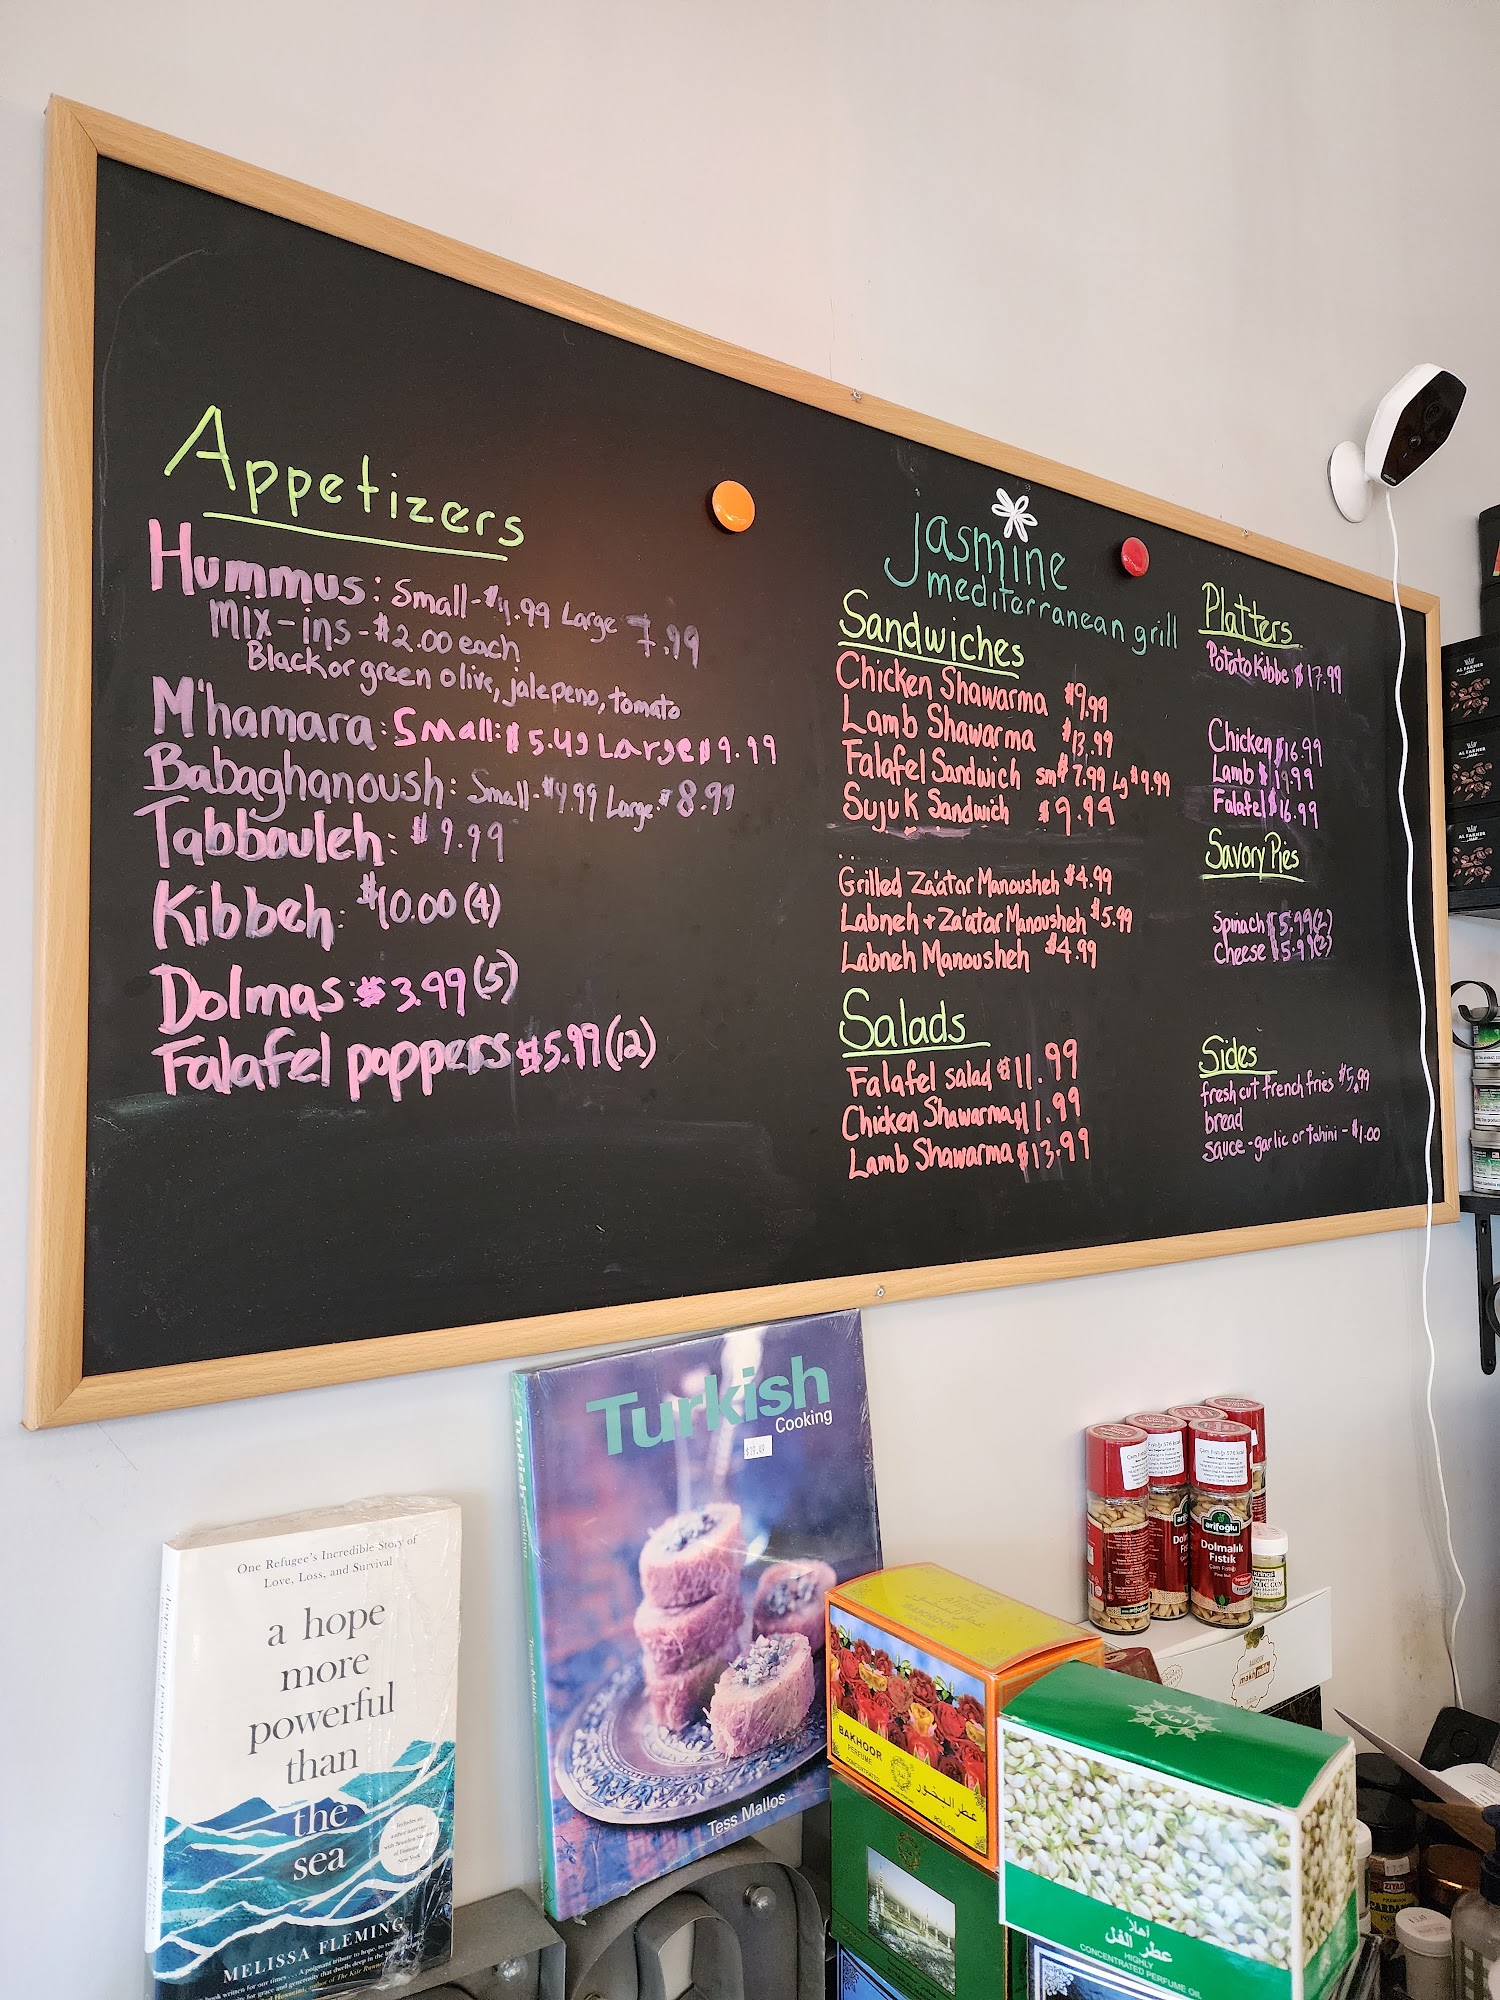 Appetizers
Hummus: Small-$4.99 Large 7.99
Mix-ins-$2.00 each
Black or green olive, jalepeno, tomato
M'hamara: Small: $5.49 Large $9.99
Babaghanoush: Small-$4.99 Large-$8.99
Tabbouleh: $9.99
Kibbeh: $10.00 (4)
Dolmas: $3.99 (5)
Falafel poppers $5.99 (12)
Jasmine
mediterranean grill
Sandwiches
Chicken Shawarma $9.99
Lamb Shawarma $13.99
Falafel Sandwich sm$7.99 Lg$9.99
Sujuk Sandwich $9.99
Grilled Za'atar Manousheh $4.99
Labneh + Za'atar Manousheh $5.99
Labneh Manousheh $4.99
Salads
Falafel salad $11.99
Chicken Shawarma $11.99
Lamb Shawarma $13.99
Platters
Potato Kibbe $17.99
Chicken $16.99
Lamb $19.99
Falafel $16.99
Savory Pies
Spinach $5.99(2)
Cheese $5.99(2)
Sides
fresh cut french fries $5.99
bread
sauce-garlic or tahini - $1.00
One Refugee's Incredible Story of
Love, Loss, and Survival
a hope
more
powerful
than
the
sea
MELISSA FLEMING
Turkish
Cooking
Tess Mallos
Turkish Cooking
arifoğlu
Dolmalık
Fıstık
BAKHOOR
PERFUME
CONCENTRATED
عطر البخور
ROLL-ON
اهلا
عطر الفل
HIGHLY
CONCENTRATED PERFUME OIL
AL FAKHER
AL FAKHER
AL FAKHER